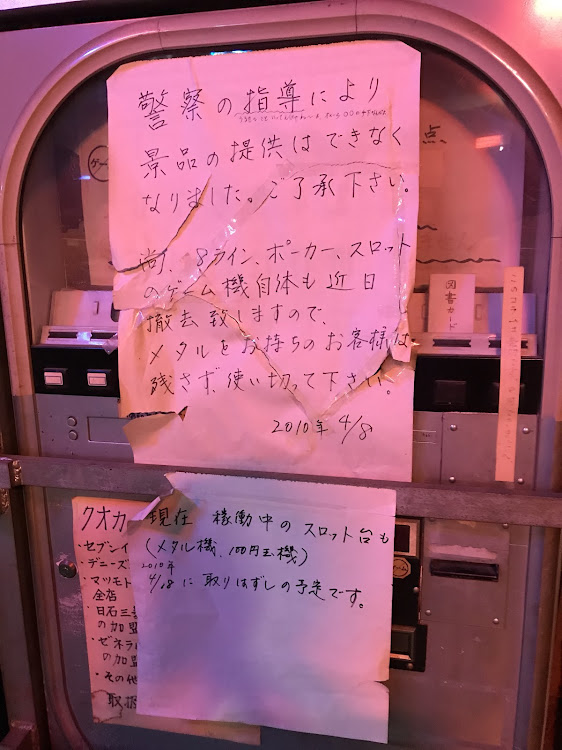 警察の指導により
景品の提供はできなく
なりました。ご了承下さい。
尚、8ライン、ポーカー、スロット
のゲーム機自体も近日
撤去致しますので、
メタルをお持ちのお客様は
残さず、使い切って下さい。
2010年 4/8
点
図書カード
現在 稼働中のスロット台も
(メタル機、100円玉機)
2010年
4/18に取りはずしの予定です。
クオカー
・セブンイ
・デニーズ
・マツモト
全店
・日石三
の加盟
・ゼネラル
の加盟
・その他
取扱